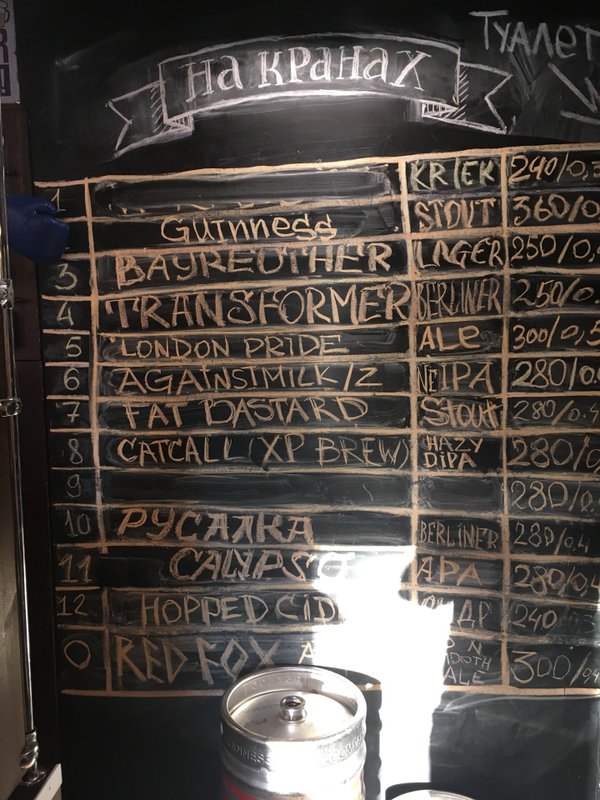 Туалет
На Кранах
1 KRIEK 240/0,3
Guinness STOUT 360/0,
3 BAYREUTHER LAGER 250/0,
4 TRANSFORMER BERLINER 250/0.
5 LONDON PRIDE ALe 300/0,5
6 AGAINSTMILK/Z NEIPA 280/0,
7 FAT BASTARD Stout 280/0.4
8 CATCALL (XP BREW) HAZY DIPA 280/0,
9 280/0,
10 РУСАЛКА BERLINER 280/0.4
11 CALYPSO APA 280/0,4
12 HOPPED CID 240/0,3
0 RED FOX ALE 300/0,4
GUINNESS